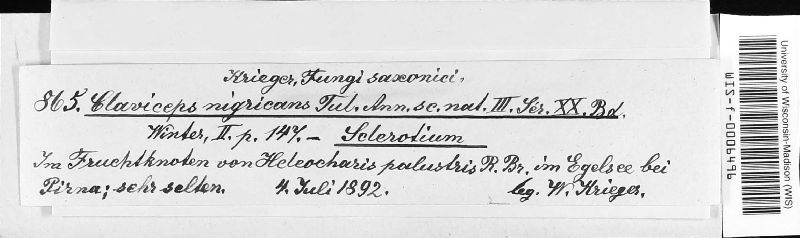 Krieger, Fungi saxonici.
865. Claviceps nigricans Tul. Ann. sc. nat. III. Sér. XX. Bd.
Winter, II. p. 147. — Sclerotium
Im Fruchtknoten von Heleocharis palustris R. Br. im Egelsee bei
Pirna; sehr selten. 4. Juli 1892. leg. W. Krieger.
University of Wisconsin-Madison (WIS)
WIS-f-0006496